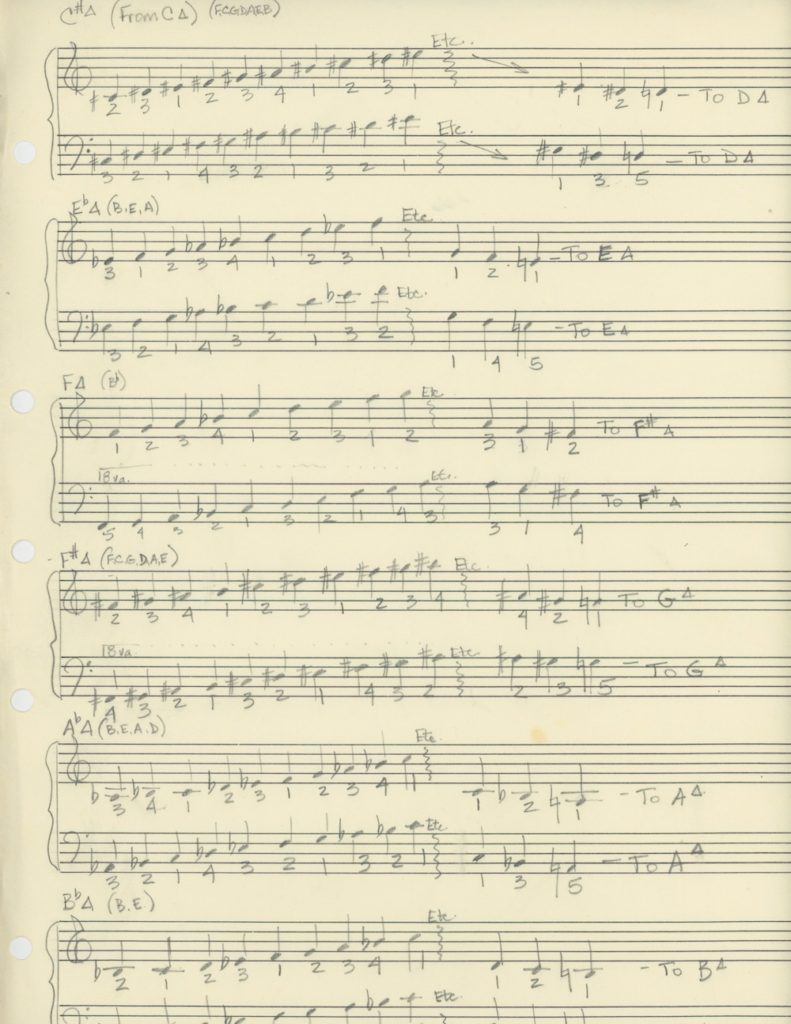 C#Δ (From CΔ) (F.C.G.D.A.E.B)
Etc.
2 3 1 2 3 4 1 2 3 1 1 2 1 - TO DΔ
Etc.
3 2 1 4 3 2 1 3 2 1 1 3 5 - TO DΔ
E♭Δ (B.E.A)
Etc.
3 1 2 3 4 1 2 3 1 1 2 1 - TO EΔ
Etc.
3 2 1 4 3 2 1 3 2 1 4 5 - TO EΔ
FΔ (B♭)
Etc
1 2 3 4 1 2 3 1 2 3 1 2 TO F#Δ
18va. Etc.
5 4 3 2 1 3 2 1 4 3 3 1 4 TO F#Δ
F#Δ (F.C.G.D.A.E)
Etc.
2 3 4 1 2 3 1 2 3 4 4 2 1 TO GΔ
18va. Etc.
4 3 2 1 3 2 1 4 3 2 2 3 5 - TO GΔ
A♭Δ (B.E.A.D)
Etc.
3 4 1 2 3 1 2 3 4 1 1 2 1 - TO AΔ
Etc.
3 2 1 4 3 2 1 3 2 1 3 5 - TO AΔ
B♭Δ (B.E)
Etc.
2 1 2 3 1 2 3 4 1 1 2 1 - TO BΔ
Etc.